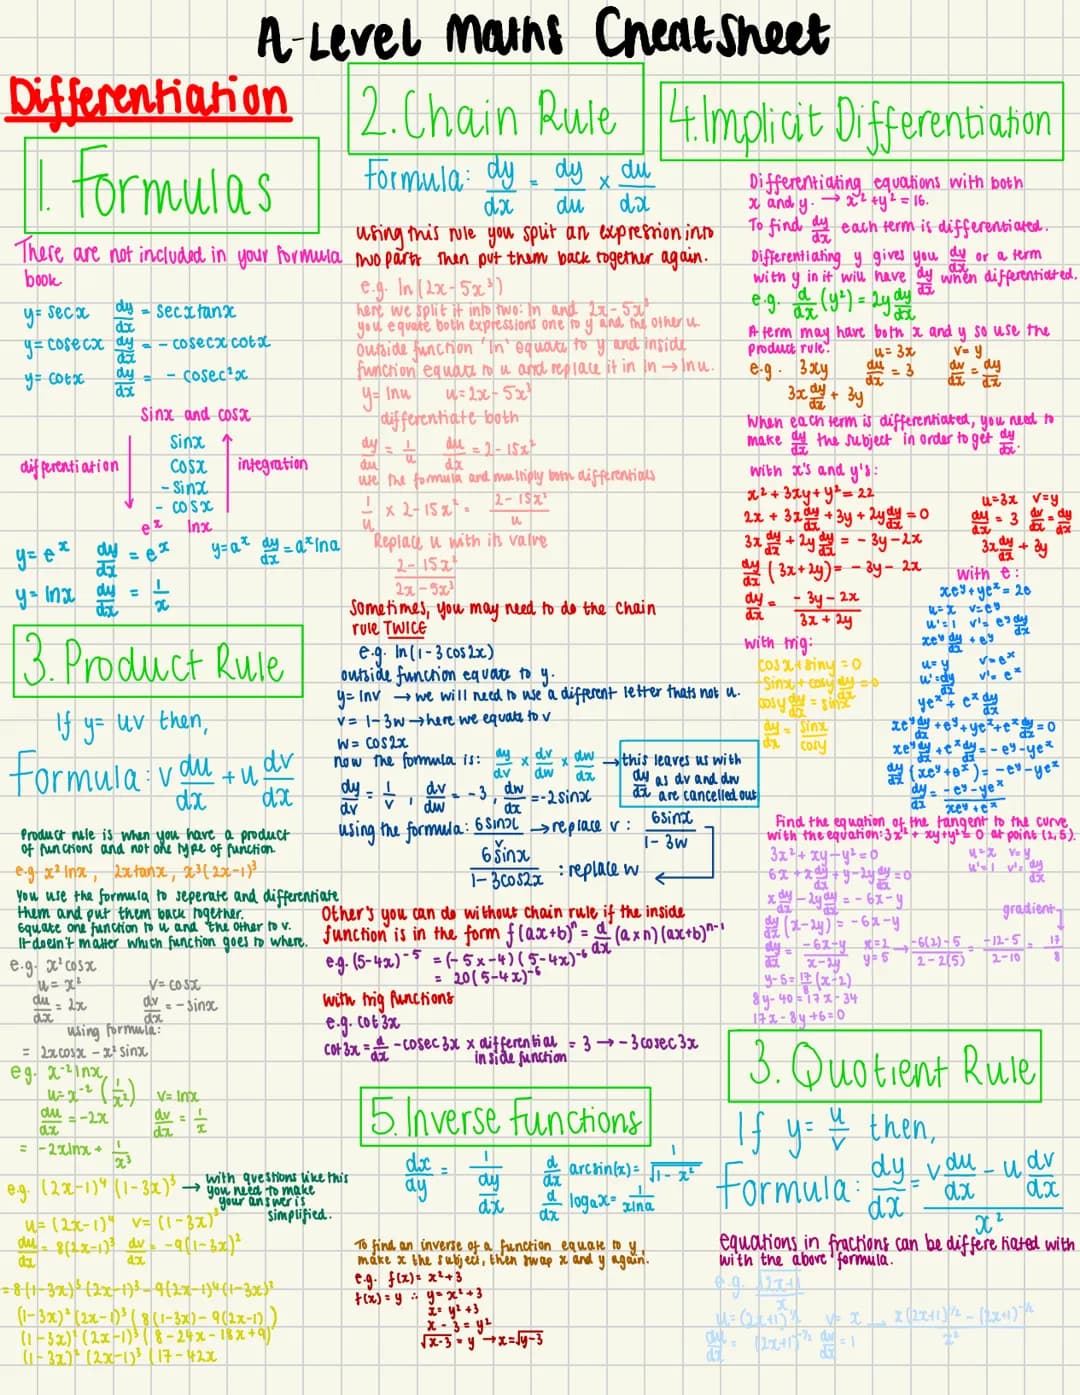 A-Level Maths CheatSheet
Differentiation
1. Formulas
There are not included in your formula
book
y= secx dy/dx = secxtanx
y= cosecx dy/dx = - cosecx cotx
y= cotx dy/dx = - cosec²x
Sinx and cosx
Sinx
differentiation cosx integration
- Sinx
- cosx
e^x lnx
y= e^x dy/dx = e^x y=a^x dy/dx = a^x lna
y= lnx dy/dx = 1/x
3. Product Rule
If y= uv then,
Formula: v du/dx + u dv/dx
Product rule is when you have a product
of functions and not one type of function.
e.g. x² lnx, 2xtanx, x³(2x-1)³
You use the formula to seperate and differentiate
them and put them back together.
Equate one function to u and the other to v.
It doesn't matter which function goes to where.
e.g. x²cosx
u= x² v= cosx
du/dx = 2x dv/dx = - sinx
using formula:
= 2xcosx - x² sinx
eg. x^-2 lnx
u= x^-2 (1/x²) v= lnx
du/dx = -2x dv/dx = 1/x
= -2xlnx + 1/x³
e.g. (2x-1)⁴ (1-3x)³ → with questions like this
you need to make
your answer is
simplified.
u= (2x-1)⁴ v= (1-3x)³
du/dx = 8(2x-1)³ dv/dx = -9(1-3x)²
= 8(1-3x)³ (2x-1)³ - 9(2x-1)⁴ (1-3x)²
(1-3x)² (2x-1)³ (8(1-3x) - 9(2x-1))
(1-3x)² (2x-1)³ (8-24x-18x+9)
(1-3x)² (2x-1)³ (17-42x
2. Chain Rule
Formula: dy/dx = dy/du × du/dx
using this rule you split an expression into
two parts then put them back together again.
e.g. ln(2x-5x³)
here we split it into two: ln and 2x-5x³
you equate both expressions one to y and the other u
outside function 'ln' equate to y and inside
function equate to u and replace it in ln → lnu.
y= lnu u= 2x-5x³
differentiate both
dy/du = 1/u du/dx = 2-15x²
use the formula and multiply both differentials
1/u × 2-15x² = 2-15x²/u
Replace u with its value
2-15x²/2x-5x³
Sometimes, you may need to do the chain
rule TWICE
e.g. ln(1-3cos2x)
outside function equate to y.
y= lnv → we will need to use a different letter thats not u.
v= 1-3w → here we equate to v
w= cos2x
now the formula is: dy/dv × dv/dw × dw/dx → this leaves us with
dy/dx as dv and dw
are cancelled out
dy/dv = 1/v, dv/dw = -3, dw/dx = -2sinx
using the formula: 6sinx/v → replace v: 6sinx/1-3w
6sinx/1-3cos2x : replace w
Other's you can do without chain rule if the inside
function is in the form f(ax+b)ⁿ = d/dx (axn)(ax+b)^n-1
e.g. (5-4x)^-5 = (-5x-4)(5-4x)^-6
= 20(5-4x)^-6
with trig functions
e.g. cot3x
cot3x = d/dx -cosec3x × differential = 3 → -3cosec3x
inside function
5. Inverse Functions
dx/dy = 1/(dy/dx) d/dx arcsin(x) = 1/√1-x²
d/dx logax = 1/xlna
To find an inverse of a function equate to y,
make x the subject, then swap x and y again.
e.g. f(x) = x²+3
f(x) = y ∴ y= x²+3
x= y²+3
x-3= y²
√x-3 = y → x=√y-3
4. Implicit Differentiation
Differentiating equations with both
x and y. → x²+y² = 16.
To find dy/dx each term is differentiated.
Differentiating y gives you dy/dx or a term
with y in it will have dy/dx when differentiated.
e.g. d/dx (y²) = 2y dy/dx
A term may have both x and y so use the
product rule.
e.g. 3xy u= 3x v= y
du/dx = 3 dv/dx = dy/dx
3x dy/dx + 3y
When each term is differentiated, you need to
make dy/dx the subject in order to get dy/dx.
with x's and y's:
x²+3xy+y² = 22 u=3x v=y
2x + 3x dy/dx + 3y + 2y dy/dx = 0 du/dx = 3 dv/dx = dy/dx
3x dy/dx + 2y dy/dx = -3y-2x 3x dy/dx + 3y
dy/dx (3x+2y) = -3y-2x
dy/dx = -3y-2x/3x+2y
with e:
xe^y + ye^x = 2e
u=x v=e^y
u'=1 v'= e^y dy/dx
xe^y dy/dx + e^y
u=y v=e^x
u'=dy/dx v'= e^x
ye^x + e^x dy/dx
xe^y dy/dx + e^y + ye^x + e^x dy/dx = 0
xe^y dy/dx + e^x dy/dx = -e^y - ye^x
dy/dx (xe^y + e^x) = -e^y - ye^x
dy/dx = -e^y - ye^x/xe^y + e^x
with trig:
cosx + siny = 0
-sinx + cosy dy/dx = 0
cosy dy/dx = sinx
dy/dx = sinx/cosy
Find the equation of the tangent to the curve
with the equation: 3x² + xy + y² = 0 at point (2,5).
3x² + xy - y² = 0 u=x v=y
6x + x dy/dx + y - 2y dy/dx = 0 u'=1 v'= dy/dx
x dy/dx - 2y dy/dx = -6x-y
dy/dx (x-2y) = -6x-y gradient
dy/dx = -6x-y/x-2y x=2 y=5 → -6(2)-5/2-2(5) = -12-5/2-10 = 17/8
y-5 = 17/8 (x-2)
8y-40 = 17x-34
17x-8y+6=0
3. Quotient Rule
If y= u/v then,
Formula: dy/dx = v du/dx - u dv/dx / x²
equations in fractions can be differe tiated with
with the above formula.
e.g. √2x+1/x
u= (2x+1)^½ v= x x(2x+1)^½ - (2x+1)^-½/x²
du/dx = (2x+1)^-½ dv/dx = 1